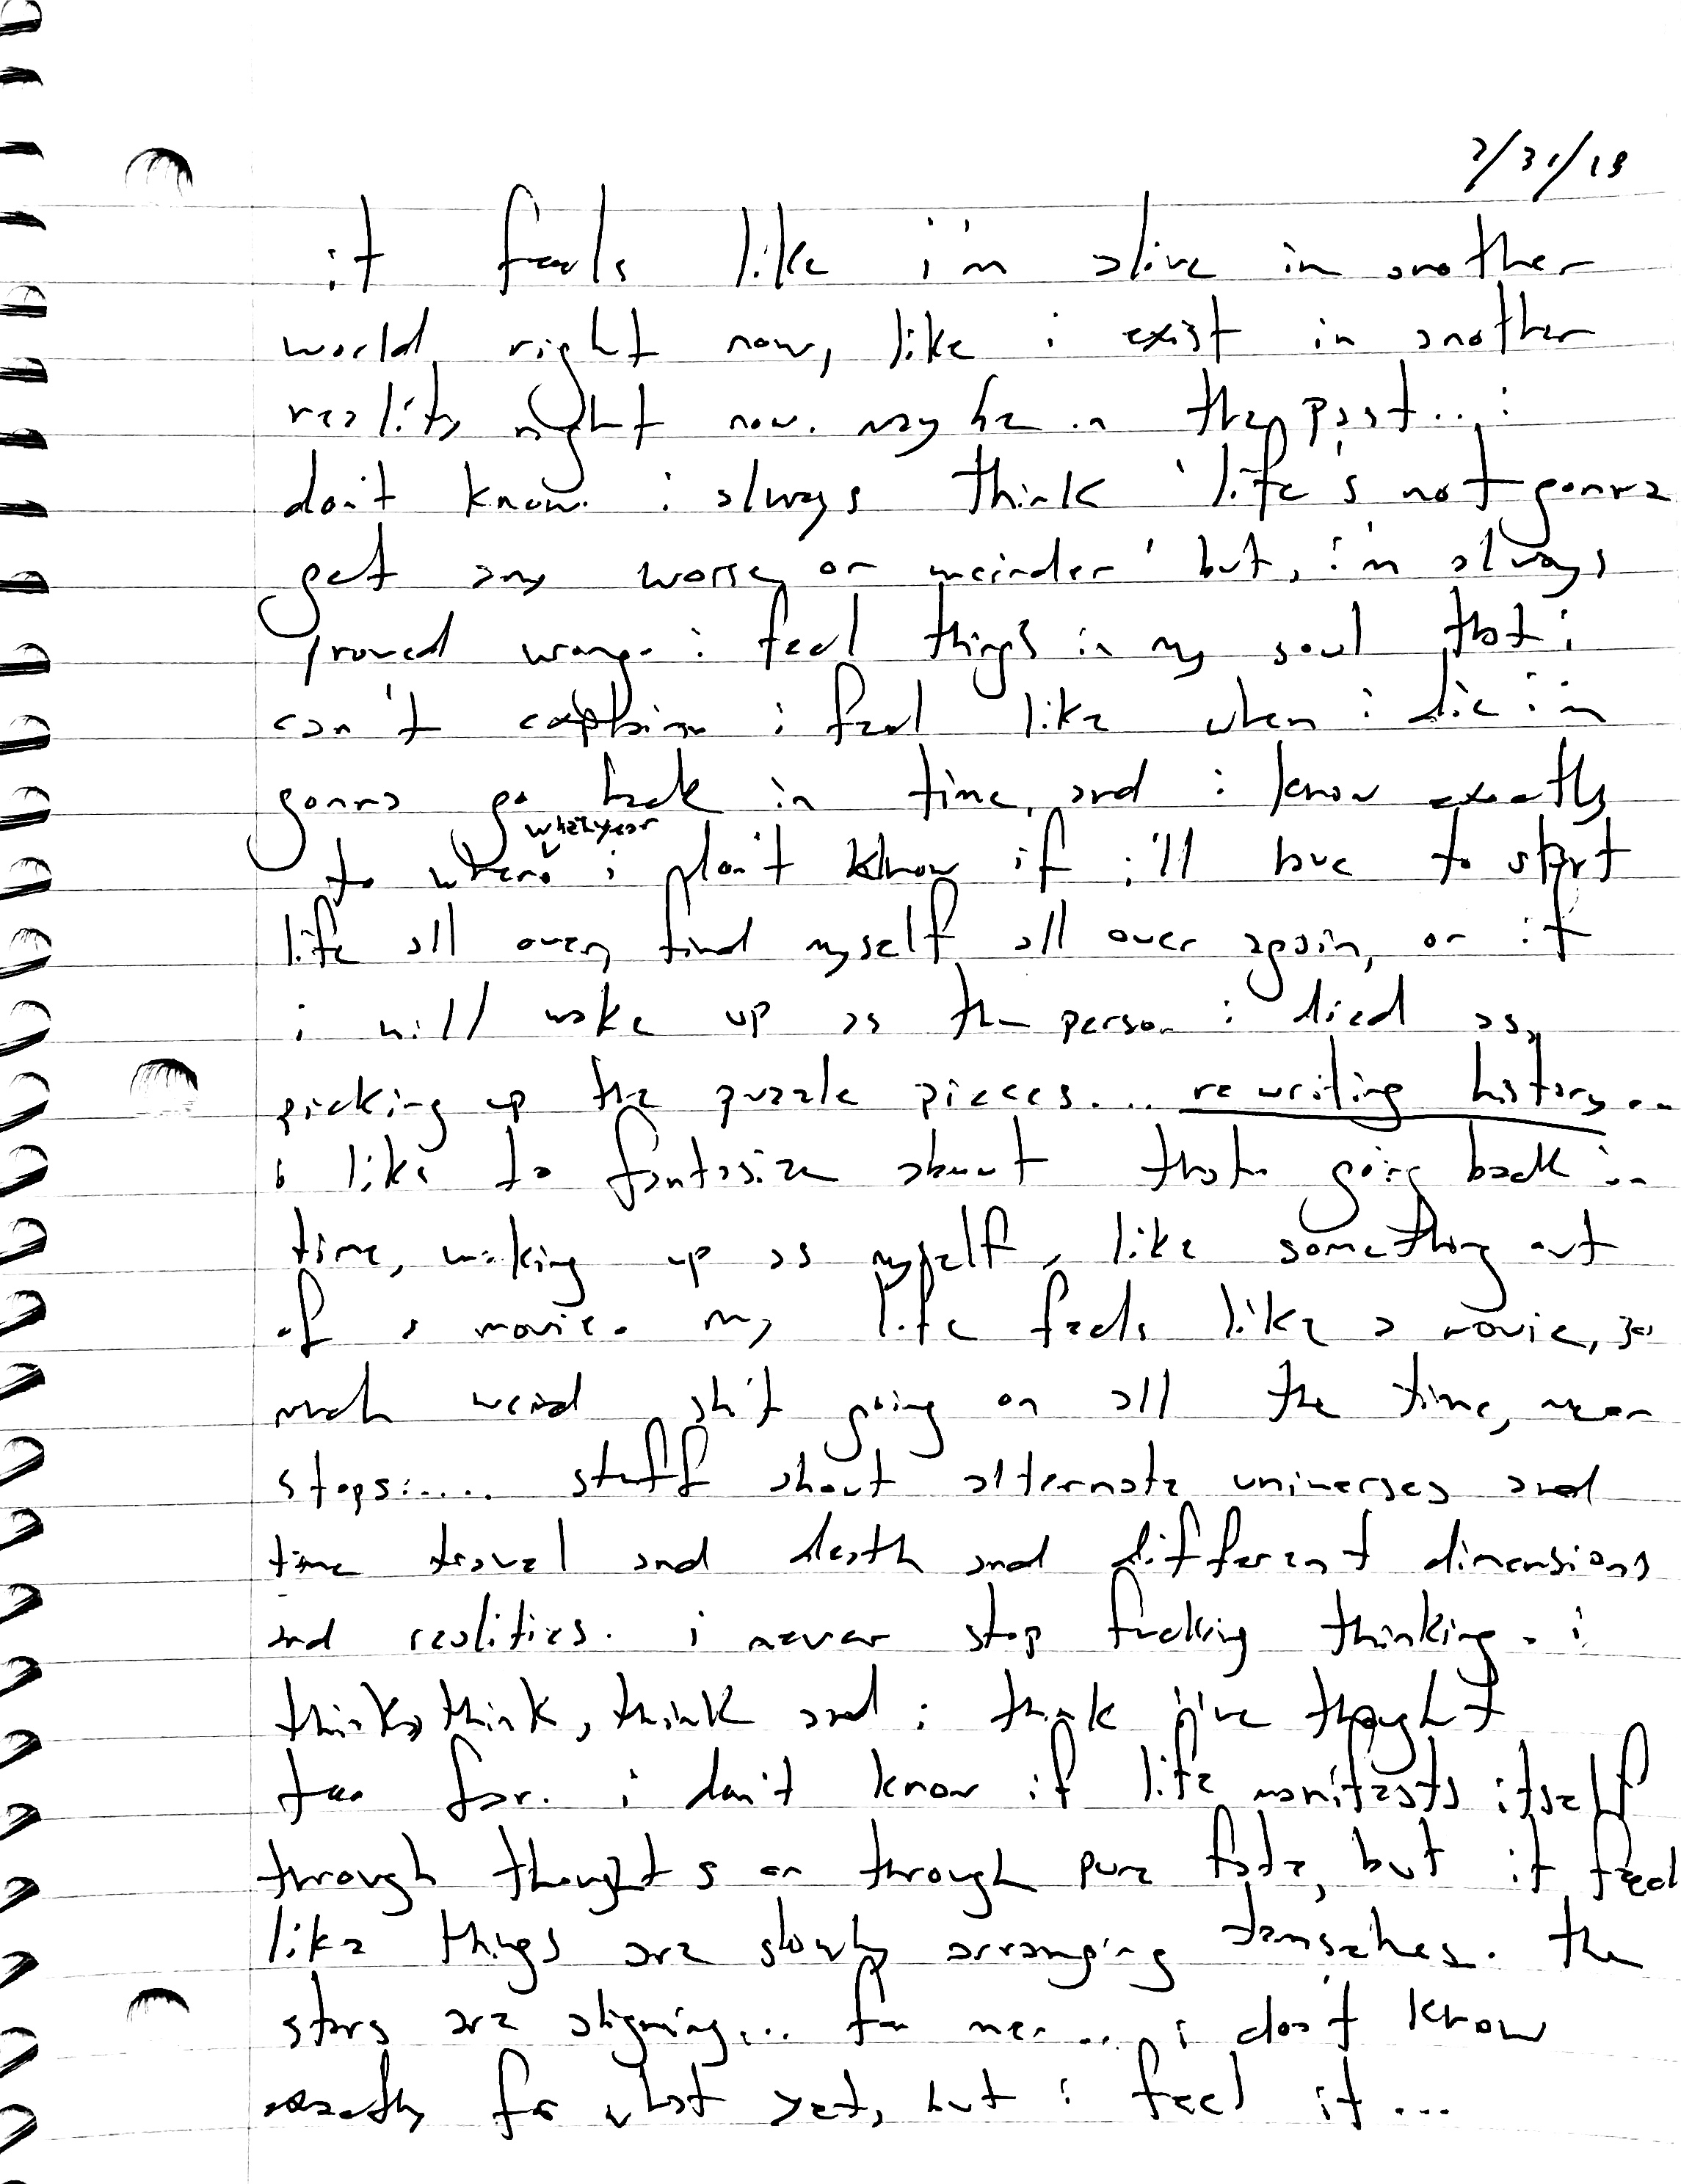 7/31/18
it feels like i'm alive in another
world right now, like i exist in another
reality right now. maybe in the past... i
don't know. i always think 'life's not gonna
get any worse, or weirder' but, i'm always
proved wrong. i feel things in my soul that i
can't explain i feel like when i die i'm
gonna go back in time, and i know exactly
what year
to where i don't know if i'll have to start
life all over, find myself all over again, or if
i will wake up as the person i died as,
picking up the puzzle pieces... rewriting history...
i like to fantasize about that. going back in
time, waking up as myself, like something out
of a movie. my life feels like a movie, so
much weird shit going on all the time, never
stops..... stuff about alternate universes and
time travel and death and different dimensions
and realities. i never stop fucking thinking. i
think, think, think and i think i've thought
too far. i don't know if life manifests itself
through thoughts or through pure fate, but it feel
like things are slowly arranging temselves. the
stars are aligning... for me... i don't know
exactly for what yet, but i feel it...